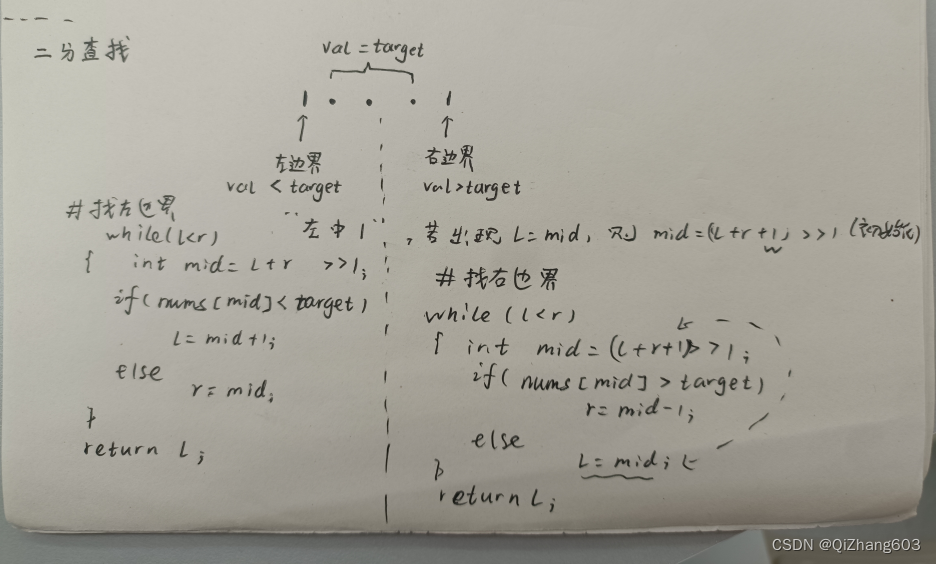 二分查找
val = target
左边界
val < target
右边界
val>target
#找左边界
while(l<r)
{ int mid= L+r >>1;
if(nums[mid]<target)
L= mid+1;
else
r= mid;
}
return L;
"左中1",若出现 L=mid, 则 mid=(L+r+1) >>1 (初始化)
#找右边界
while (l<r)
{ int mid=(L+r+1)>>1;
if( nums[mid]>target)
r=mid-1;
else
L=mid;
}
return L;
CSDN @QiZhang603